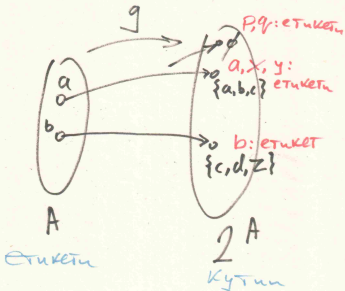 g
p, q: етикети
∅
a
a, x, y:
{a,b,c} етикети
b
b: етикет
{c,d,z}
A
2^A
етикети
кутии